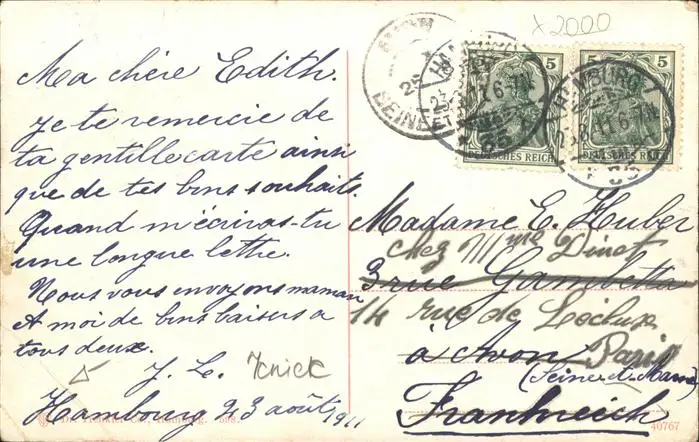 x 2000
5 5
DEUTSCHES REICH DEUTSCHES REICH
HAMBURG
Ma chère Edith.
je te remercie de
ta gentille carte ainsi
que de tes bons souhaits.
Quand m'écriras-tu
une longue lettre.
Nous vous envoyons maman
et moi de bons baisers a
tous deux.
J. L.
Knick
Hambourg 23 août 1911
Madame E. Huber
chez Mme Dinet
3 rue Gambetta
14 rue de Lécluse
à Avon Paris
(Seine et Marne)
Frankreich
40767